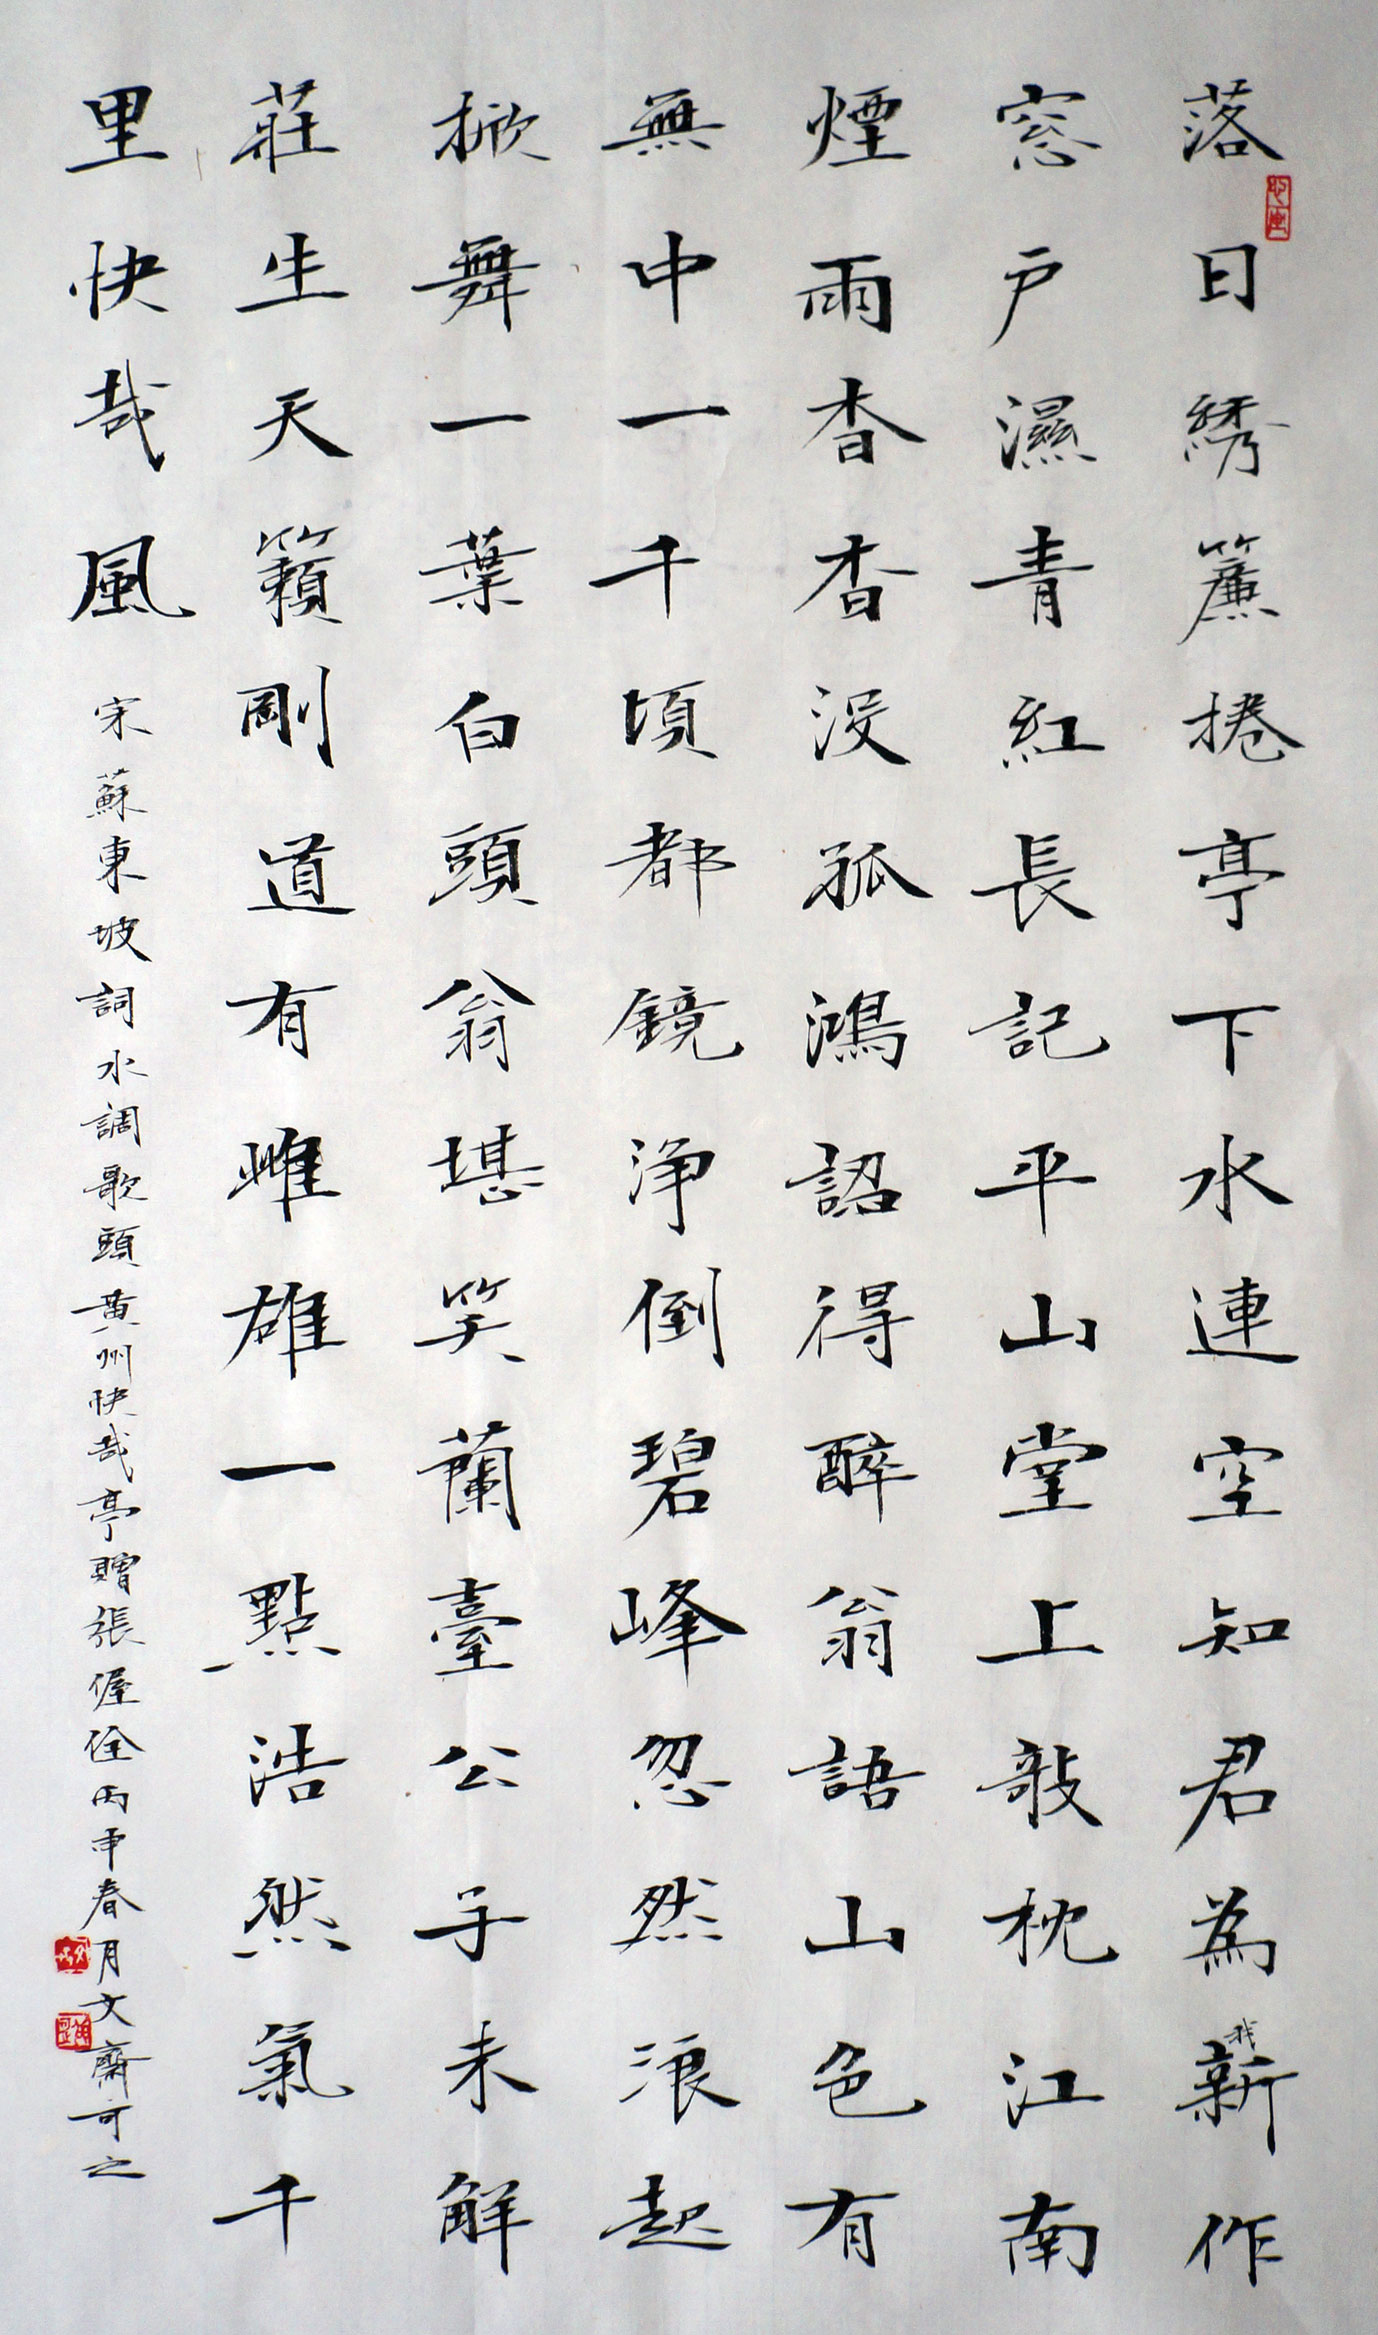 落日綉簾捲亭下水連空知君為我新作
窓戶濕青紅長記平山堂上敧枕江南
煙雨杳杳沒孤鴻認得醉翁語山色有
無中一千頃都鏡淨倒碧峰忽然浪起
掀舞一葉白頭翁堪笑蘭臺公子未解
莊生天籟剛道有雌雄一點浩然氣千
里快哉風
宋蘇東坡詞水調歌頭黃州快哉亭贈張偓佺丙申春月文齋可之